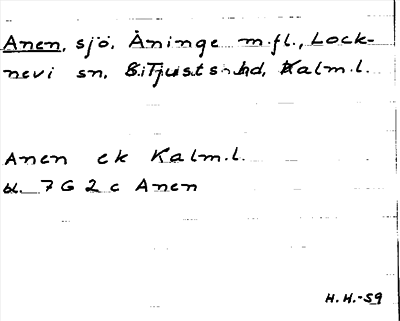 Anen, sjö, Åninge m.fl., Lock-
nevi sn, S. Tjusts hd, Kalm. l.
Anen ek Kalm. l.
bl. 7 G 2 c Anen
H. H.-59